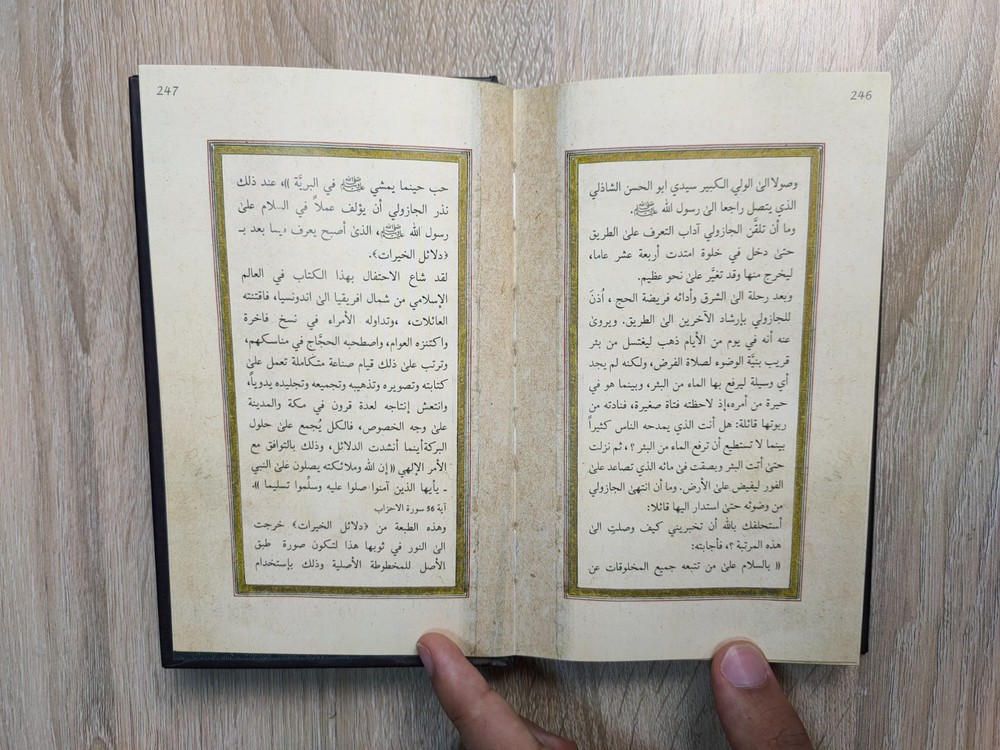 246
وصولا الىٰ الولي الكبير سيدي ابو الحسن الشاذلي
الذي يتصل راجعا الىٰ رسول الله ﷺ.
وما أن تلقَّن الجازولي آداب التعرف علىٰ الطريق
حتىٰ دخل في خلوة امتدت أربعة عشر عاما،
ليخرج منها وقد تغيَّر علىٰ نحو عظيم.
وبعد رحلة الىٰ الشرق وأدائه فريضة الحج ، أذنَ
للجازولي بإرشاد الآخرين الىٰ الطريق. ويروىٰ
عنه أنه في يوم من الأيام ذهب ليغتسل من بئر
قريب بنيَّة الوضوء لصلاة الفرض، ولكنه لم يجد
أي وسيلة ليرفع بها الماء من البئر، وبينما هو في
حيرة من أمره،إذ لاحظته فتاة صغيرة، فنادته من
ربوتها قائلة: هل أنت الذي يمدحه الناس كثيراً
بينما لا تستطيع أن ترفع الماء من البئر ؟، ثم نزلت
حتىٰ أتت البئر وبصقت في مائه الذي تصاعد علىٰ
الفور ليفيض علىٰ الأرض. وما أن انتهىٰ الجازولي
من وضوئه حتىٰ استدار اليها قائلا:
أستحلفك بالله أن تخبريني كيف وصلتِ الىٰ
هذه المرتبة ؟، فأجابته:
(( بالسلام علىٰ من تتبعه جميع المخلوقات عن
247
حب حينما يمشي ﷺ في البريَّة ))، عند ذلك
نذر الجازولي أن يؤلف عملاً في السلام علىٰ
رسول الله ﷺ، الذىٰ أصبح يعرف فيما بعد بـ
﴿دلائل الخيرات﴾.
لقد شاع الاحتفال بهذا الكتاب في العالم
الإسلامي من شمال افريقيا الىٰ اندونسيا، فاقتنته
العائلات، ،وتداوله الأمراء، في نسخ فاخرة
واكتنزه العوام، واصطحبه الحجَّاج في مناسكهم،
وترتب علىٰ ذلك قيام صناعة متكاملة تعمل علىٰ
كتابته وتصويره وتذهيبه وتجميعه وتجليده يدوياً،
وانتعش إنتاجه لعدة قرون في مكة والمدينة
علىٰ وجه الخصوص، فالكل يُجمع علىٰ حلول
البركةأينما أنشدت الدلائل، وذلك بالتوافق مع
الأمر الإلهي (( إن الله وملائكته يصلون علىٰ النبي
ـ يأيها الذين آمنوا صلوا عليه وسلَّموا تسليما ))،
آية 56 سورة الاحزاب
وهذه الطبعة من ﴿دلائل الخيرات﴾ خرجت
الىٰ النور في ثوبها هذا لتكون صورة طبق
الأصل للمخطوطة الأصلية وذلك بإستخدام